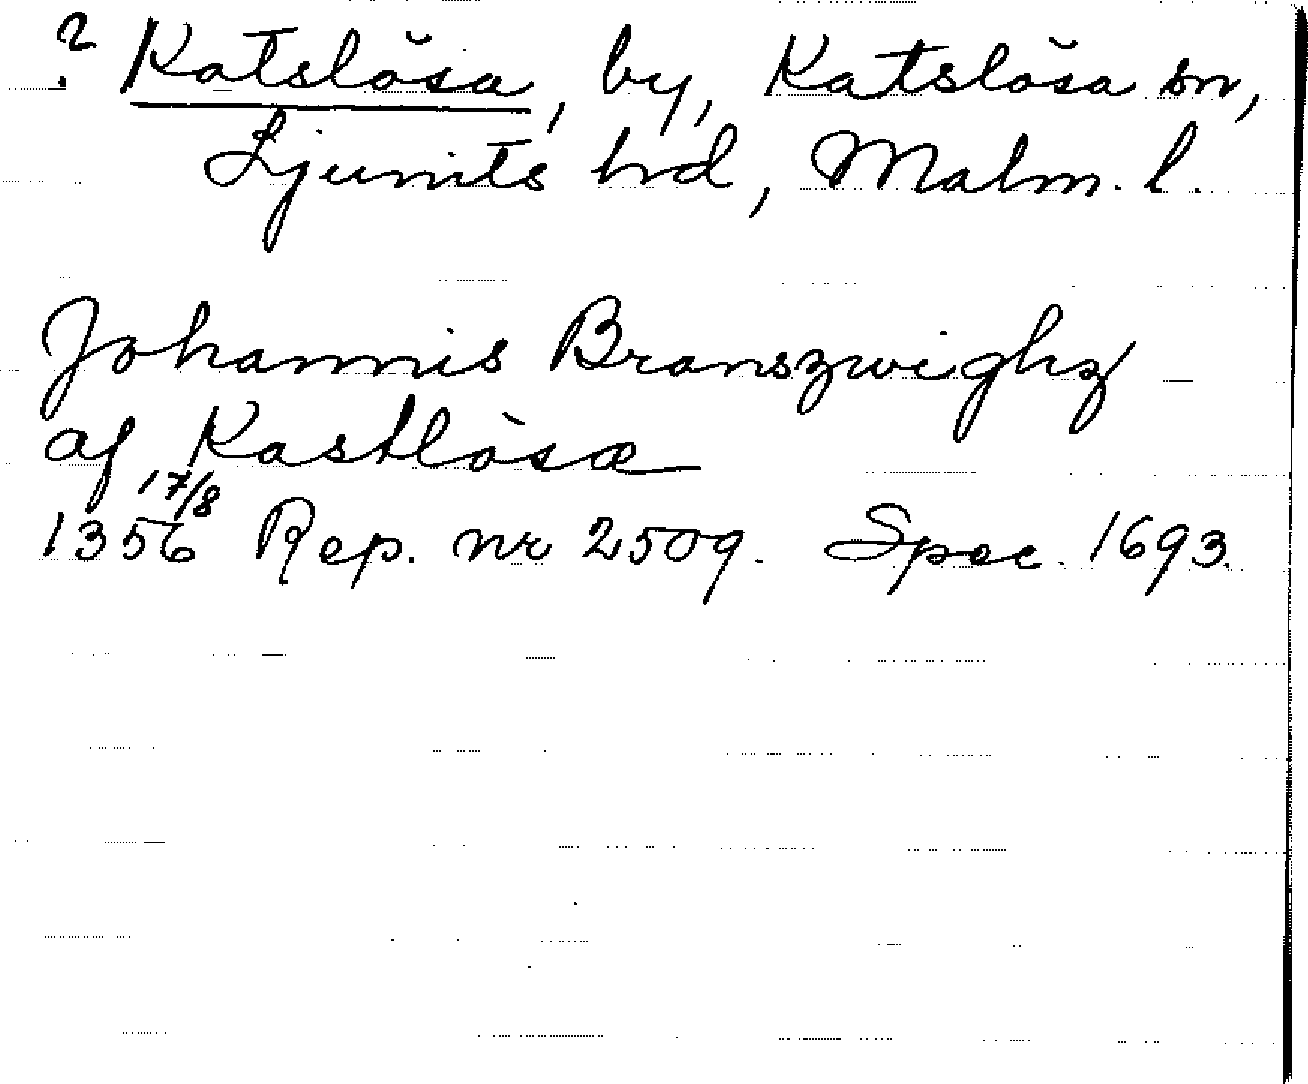 ? Katslösa, by, Katslösa sn,
Ljunits hd, Malm. l.
Johannis Branszwighz
af Kastlösæ
17/8
1356 Rep. nr 2509. Spec. 1693.